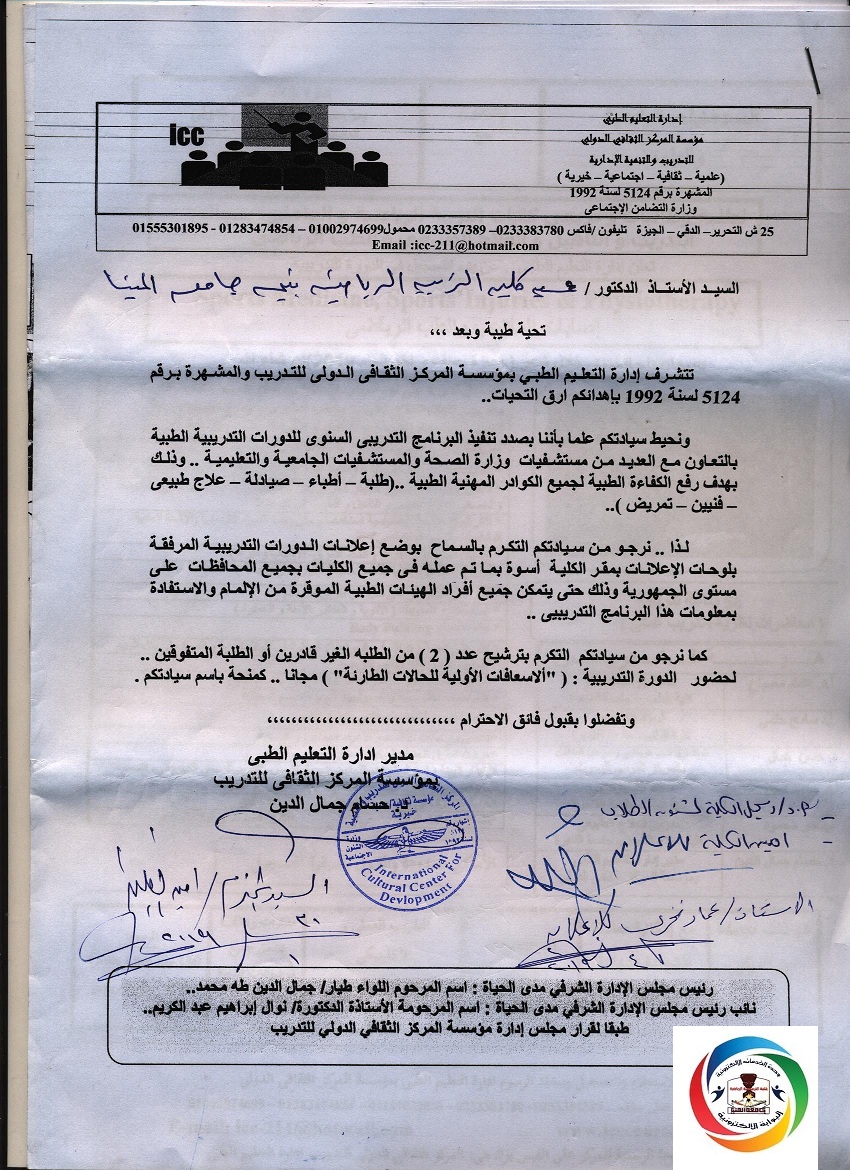 icc
إدارة التعليم الطبى
مؤسسة المركز الثقافى الدولى
للتدريب والتنمية الإدارية
(علمية – ثقافية – اجتماعية – خيرية )
المشهرة برقم 5124 لسنة 1992
وزارة التضامن الإجتماعى
25 ش التحرير– الدقي – الجيزة تليفون /فاكس 0233383780– 0233357389 محمول01002974699 – 01283474854 – 01555301895
Email :icc-211@hotmail.com
السيد الأستاذ الدكتور / عميد كلية التربية الرياضية بنين جامعة المنيا
تحية طيبة وبعد ،،،
تتشرف إدارة التعليم الطبي بمؤسسة المركز الثقافى الدولى للتدريب والمشهرة برقم
5124 لسنة 1992 بإهدائكم ارق التحيات..
ونحيط سيادتكم علما بأننا بصدد تنفيذ البرنامج التدريبى السنوى للدورات التدريبية الطبية
بالتعاون مع العديد من مستشفيات وزارة الصحة والمستشفيات الجامعية والتعليمية .. وذلك
بهدف رفع الكفاءة الطبية لجميع الكوادر المهنية الطبية ..(طلبة – أطباء – صيادلة – علاج طبيعى
– فنيين – تمريض )..
لذا .. نرجو من سيادتكم التكرم بالسماح بوضع إعلانات الدورات التدريبية المرفقة
بلوحات الإعلانات بمقر الكلية أسوة بما تم عمله فى جميع الكليات بجميع المحافظات على
مستوى الجمهورية وذلك حتى يتمكن جميع أفراد الهيئات الطبية الموقرة من الإلمام والاستفادة
بمعلومات هذا البرنامج التدريبيى ..
كما نرجو من سيادتكم التكرم بترشيح عدد ( 2 ) من الطلبه الغير قادرين أو الطلبة المتفوقين ..
لحضور الدورة التدريبية : ( "ألاسعافات الأولية للحالات الطارئة" ) مجانا .. كمنحة باسم سيادتكم .
وتفضلوا بقبول فائق الاحترام ،،،،،،،،،،،،،،،،،،،،،،،،،،،،،،،
مدير ادارة التعليم الطبى
بمؤسسة المركز الثقافى للتدريب
حسام جمال الدين
International
Cultural Center For
Devlopment
وكيل الكلية لشئون الطلاب
امين الكلية للاعلان
الاستاذ / عماد
السيد / امين
رئيس مجلس الإدارة الشرفي مدى الحياة : اسم المرحوم اللواء طيار/ جمال الدين طه محمد..
نائب رئيس مجلس الإدارة الشرفي مدى الحياة : اسم المرحومة الأستاذة الدكتورة/ نوال إبراهيم عبد الكريم..
طبقا لقرار مجلس إدارة مؤسسة المركز الثقافي الدولي للتدريب
وحدة الخدمات الإلكترونية
البوابة الالكترونية